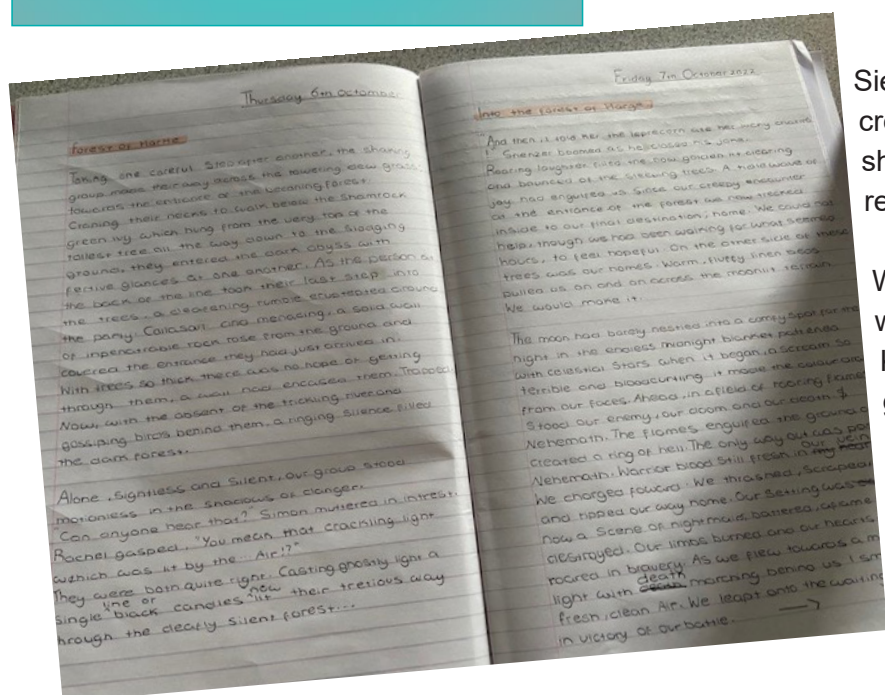 Thursday 6th October
Forest of Harne
Taking one careful step after another, the shaking
group made their way across the towering dew grass
towards the entrance of the beaming forest.
Craning their necks to walk below the shamrock
green ivy which hung from the very top of the
tallest tree all the way down to the slodging
ground, they entered the dark abyss with
fertive glances at one another. As the person at
the back of the line took their last step into
the trees, a deafening rumble around
the party. and menacing, a solid wall
of inpenatrable rock rose from the ground and
covered the entrance they had just arrived in.
With trees so thick there was no hope of getting
through them, a wall now encased them. Trapped
Now, with the absent of the trickling river and
gossiping birds behind them, a ringing silence filled
the dark forest.
Alone, sightless and silent, our group stood
motionless in the shadows of danger.
"Can anyone hear that?" Simon muttered in intrest.
Rachel gasped, "You mean that crackling light
which was lit by the... Air!?"
They were both quite right. Casting ghostly light a
line of new
single black candles lit their tretious way
hrough the deafly silent forest...
Friday 7th October 2022
Into the forest of Harge
"And then it told her the leprecorn ate her
boomed as he his joke.
Roaring laughter filled the now golden lit clearing
and bounced of the trees. A tidal wave of
joy had engulfed us since our creepy encounter
at the entrance of the forest we now treked
inside to our final destination; home. We could not
help, though we had been waiting for what seemed
hours, to feel hopeful. On the other side of these
trees was our homes. Warm, fluffy linen beds
pulled us on and on across the moonlit terrain.
We would make it.
The moon had barely nestled into a comfy spot for the
night in the endless midnight blanket patterned
with celestial stars when it began, a scream so
terrible and bloodcurtling it made the colour
from our faces. Ahead, in a field of roaring flames
Stood our enemy, our doom and our death.
Nehemoth. The flames engulfed the ground
created a ring of hell. The only way out was
our vein
Nehemoth. Warrior blood still fresh in my
We charged foward. We thrashed, scraped
and ripped our way home. Our setting was
now a scene of nightmair, battered,
destroyed. Our limbs burned and our hearts
roared in bravery. As we flew towards a
death
light with marching behind us I
fresh, clean Air. We leapt onto the waiting
in victory of our battle.
Sie
cr
sh
re
W
w